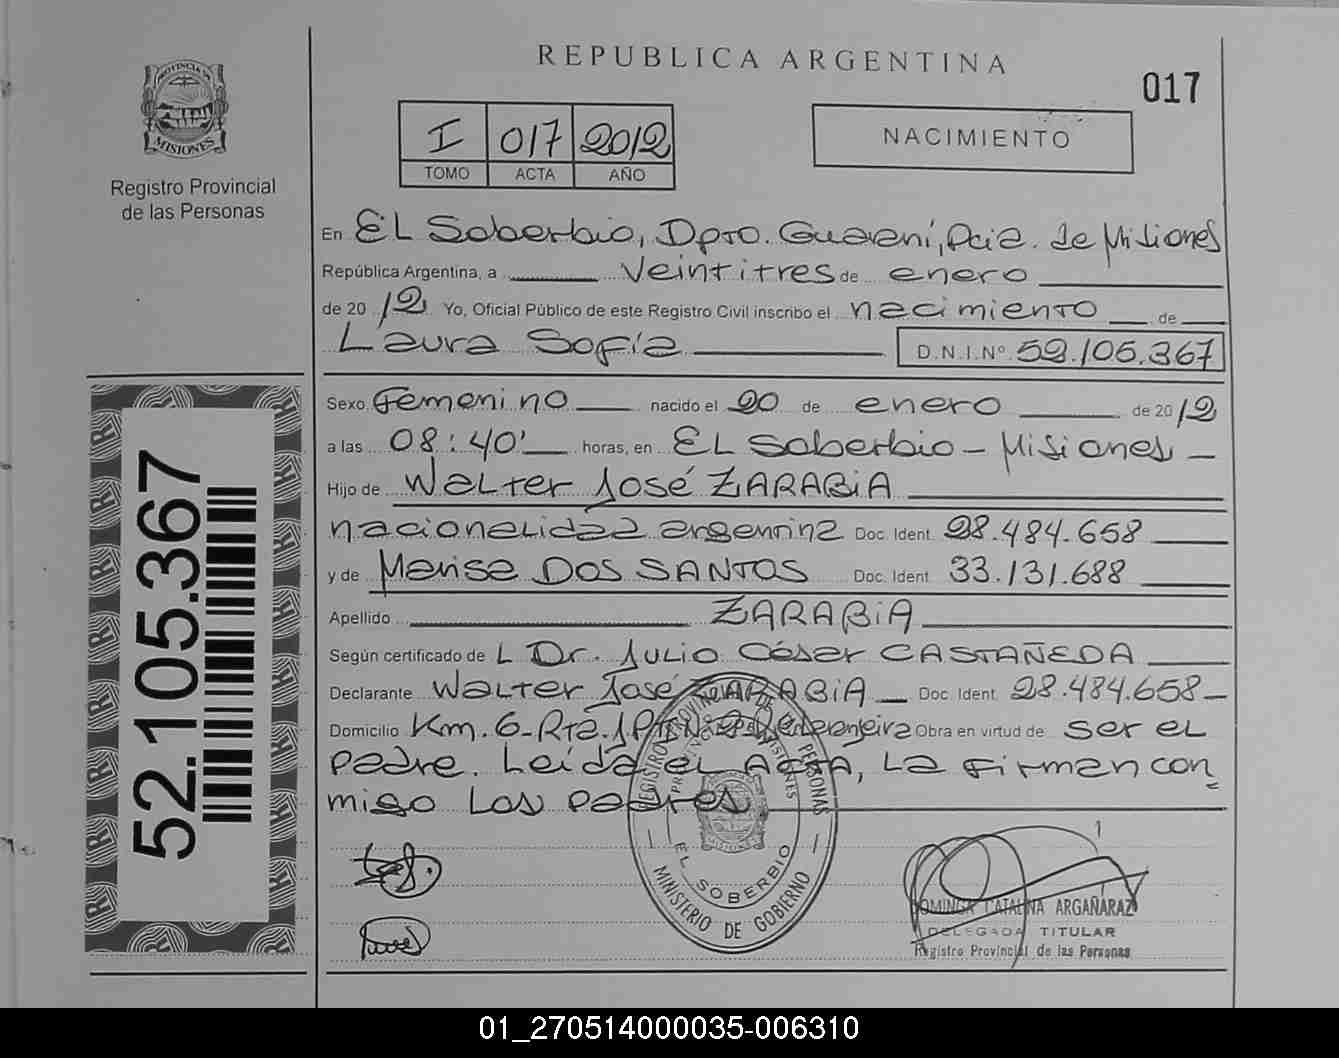 REPUBLICA ARGENTINA
017
PROVINCIA DE
MISIONES
Registro Provincial
de las Personas
I 017 2012
TOMO ACTA AÑO
NACIMIENTO
En EL Soberbio, Dpto. Guaraní, Pcia. de Misiones
República Argentina, a veintitres de enero
de 2012 Yo, Oficial Público de este Registro Civil inscribo el nacimiento de
Laura Sofía D.N.I.Nº 52.105.367
Sexo Femenino nacido el 20 de enero de 2012
a las 08:40' horas, en EL Soberbio - Misiones -
Hijo de Walter José ZARABIA
nacionalidad argentina Doc. Ident. 28.484.658
y de Marisa DOS SANTOS Doc. Ident. 33.131.688
Apellido ZARABIA
Según certificado de L Dr. Julio César CASTAÑEDA
Declarante Walter José ZARABIA Doc. Ident. 28.484.658-
Domicilio Km. 6- Rta. Obra en virtud de ser el
padre. Leída el Acta, La firman con
migo Los padres
52.105.367
REGISTRO PROVINCIAL DE LAS PERSONAS
PROVINCIA DE MISIONES
EL SOBERBIO
MINISTERIO DE GOBIERNO
DOMINGA CATALINA ARGAÑARAZ
DELEGADA TITULAR
Registro Provincial de las Personas
01_270514000035-006310